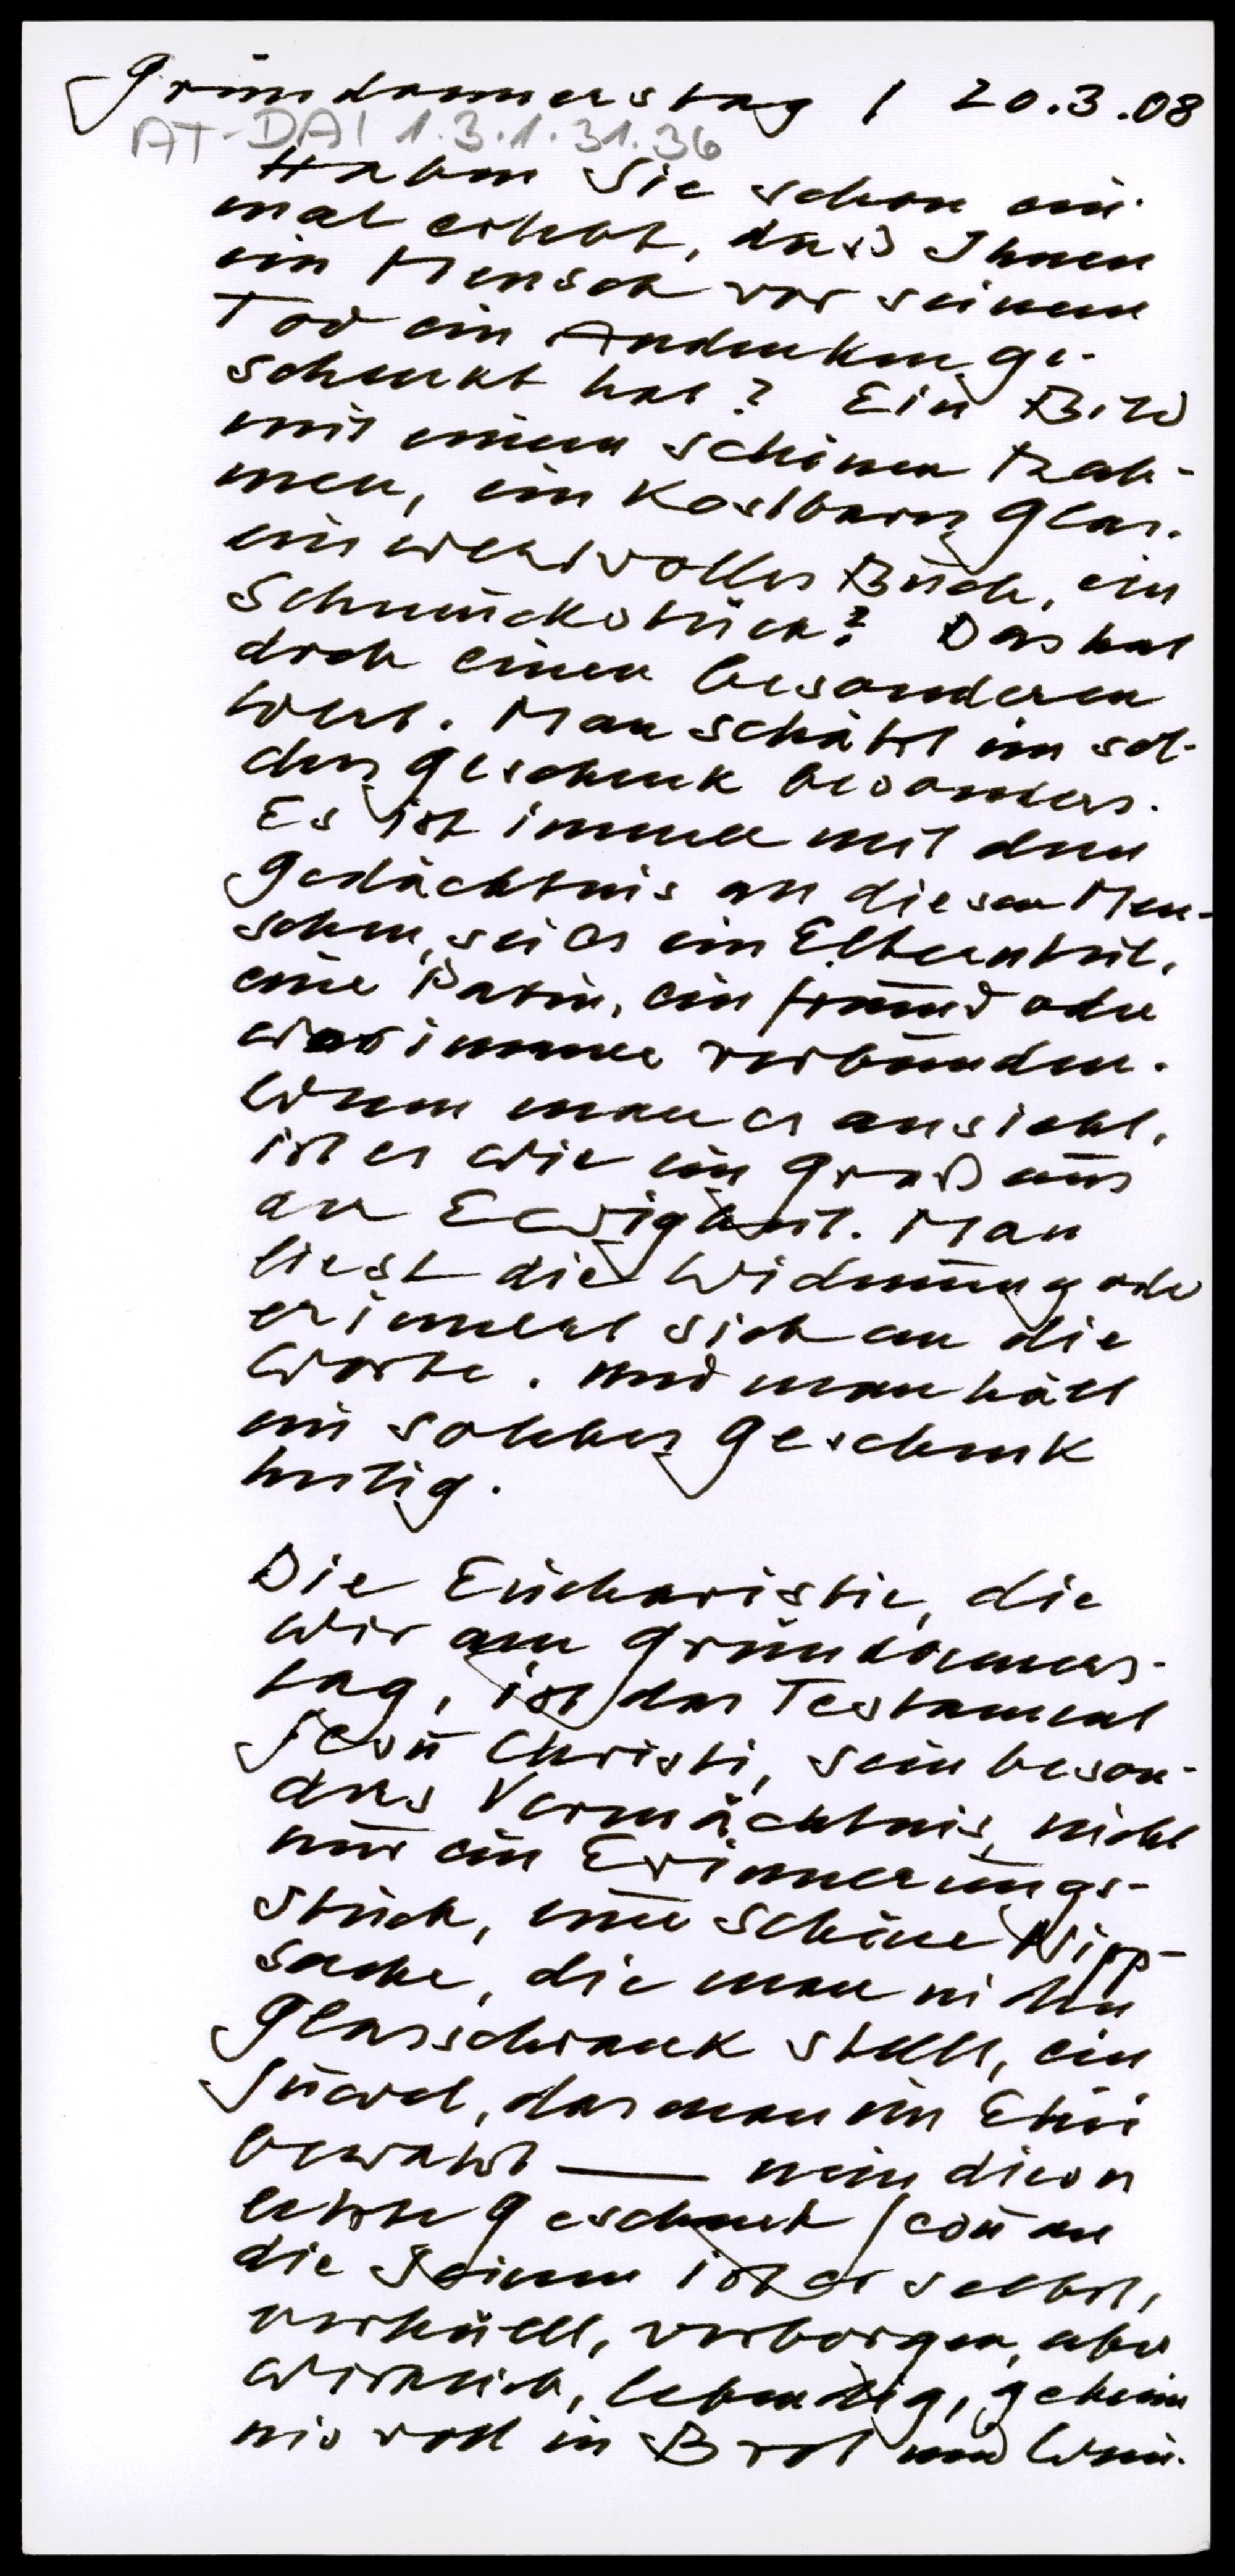 Gründonnerstag / 20.3.08
AT-DAI 1.3.1.31.36
Haben Sie schon ein-
mal erlebt, dass Ihnen
ein Mensch vor seinem
Tod ein Andenken ge-
schenkt hat? Ein Bild
mit einem schönen Rah-
men, ein kostbares Glas,
ein wertvolles Buch, ein
Schmuckstück? Das hat
doch einen besonderen
Wert. Man schätzt ein sol-
ches Geschenk besonders.
Es ist immer mit dem
Gedächtnis an diesen Men-
schen, sei es ein Elternteil,
eine Patin, ein Freund oder
wer immer verbunden.
Wenn man es ansieht,
ist es wie ein Gruß aus
der Ewigkeit. Man
liest die Widmung oder
erinnert sich an die
Worte. Und man hält
ein solches Geschenk
heilig.
Die Eucharistie, die
wir am Gründonners-
tag, ist das Testament
Jesu Christi, sein beson-
deres Vermächtnis, nicht
nur ein Erinnerungs-
stück, eine schöne Nipp-
sache, die man in den
Glasschrank stellt, ein
Juwel, das man im Etui
bewahrt — nein dieses
letzte Geschenk Jesu an
die Seinen ist er selbst,
verhüllt, verborgen, aber
wirklich, lebendig, geheim
nisvoll in Brot und Wein.